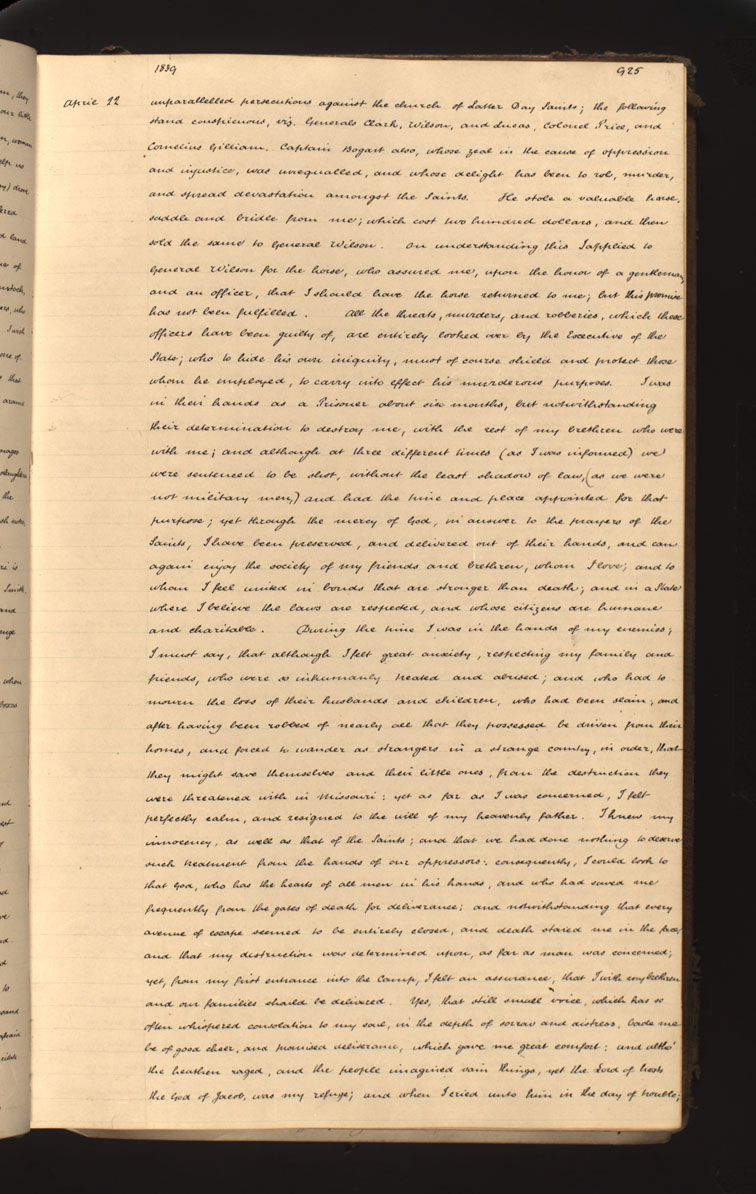 1839 925
April 22 unparallelled persecutions against the church of Latter Day Saints; the following
stand conspicuous, viz. Generals Clark, Wilson, and Lucas, Colonel Price, and
Cornelius Gilliam. Captain Bogart also, whose zeal in the cause of oppression
and injustice, was unequalled, and whose delight has been to rob, murder,
and spread devastation amongst the Saints. He stole a valuable horse,
saddle and bridle from me; which cost two hundred dollars, and then
sold the same to General Wilson. On understanding this I applied to
General Wilson for the horse, who assured me, upon the honor of a gentleman,
and an officer, that I should have the horse returned to me; but this promise
has not been fulfilled. All the threats, murders, and robberies, which these
officers have been guilty of, are entirely looked over by the Executive of the
State; who to hide his own iniquity, must of course shield and protect those
whom he employed, to carry into effect his murderous purposes. I was
in their hands as a Prisoner about six months, but notwithstanding
their determination to destroy me, with the rest of my brethren who were
with me; and although at three different times (as I was informed) we
were sentenced to be shot, without the least shadow of law, (as we were
not military men,) and had the time and place appointed for that
purpose; yet through the mercy of God, in answer to the prayers of the
Saints, I have been preserved, and delivered out of their hands, and can
again enjoy the society of my friends and brethren, whom I love; and to
whom I feel united in bonds that are stronger than death; and in a State
where I believe the laws are respected, and whose citizens are humane
and charitable. During the time I was in the hands of my enemies;
I must say, that although I felt great anxiety, respecting my family and
friends, who were so inhumanly treated and abused; and who had to
mourn the loss of their husbands and children, who had been slain; and
after having been robbed of nearly all that they possessed be driven from their
homes, and forced to wander as strangers in a strange country, in order, that
they might save themselves and their little ones, from the destruction they
were threatened with in Missouri: yet as far as I was concerned, I felt
perfectly calm, and resigned to the will of my heavenly father. I knew my
innocency, as well as that of the Saints; and that we had done nothing to deserve
such treatment from the hands of our oppressors: consequently, I could look to
that God, who has the hearts of all men in his hands, and who had saved me
frequently from the gates of death for deliverance; and notwithstanding that every
avenue of escape seemed to be entirely closed, and death stared me in the face,
and that my destruction was determined upon, as far as man was concerned;
yet, from my first entrance into the camp, I felt an assurance, that I with my brethren
and our families should be delivered. Yes, that still small voice, which has so
often whispered consolation to my soul, in the depth of sorrow and distress, bade me
be of good cheer, and promised deliverance, which gave me great comfort: and altho'
the heathen raged, and the people imagined vain things, yet the Lord of hosts
the God of Jacob, was my refuge; and when I cried unto him in the day of trouble;